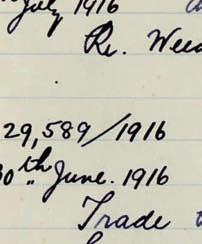 July 1916
Re. Weed
29,589/1916
30th June. 1916
Trade